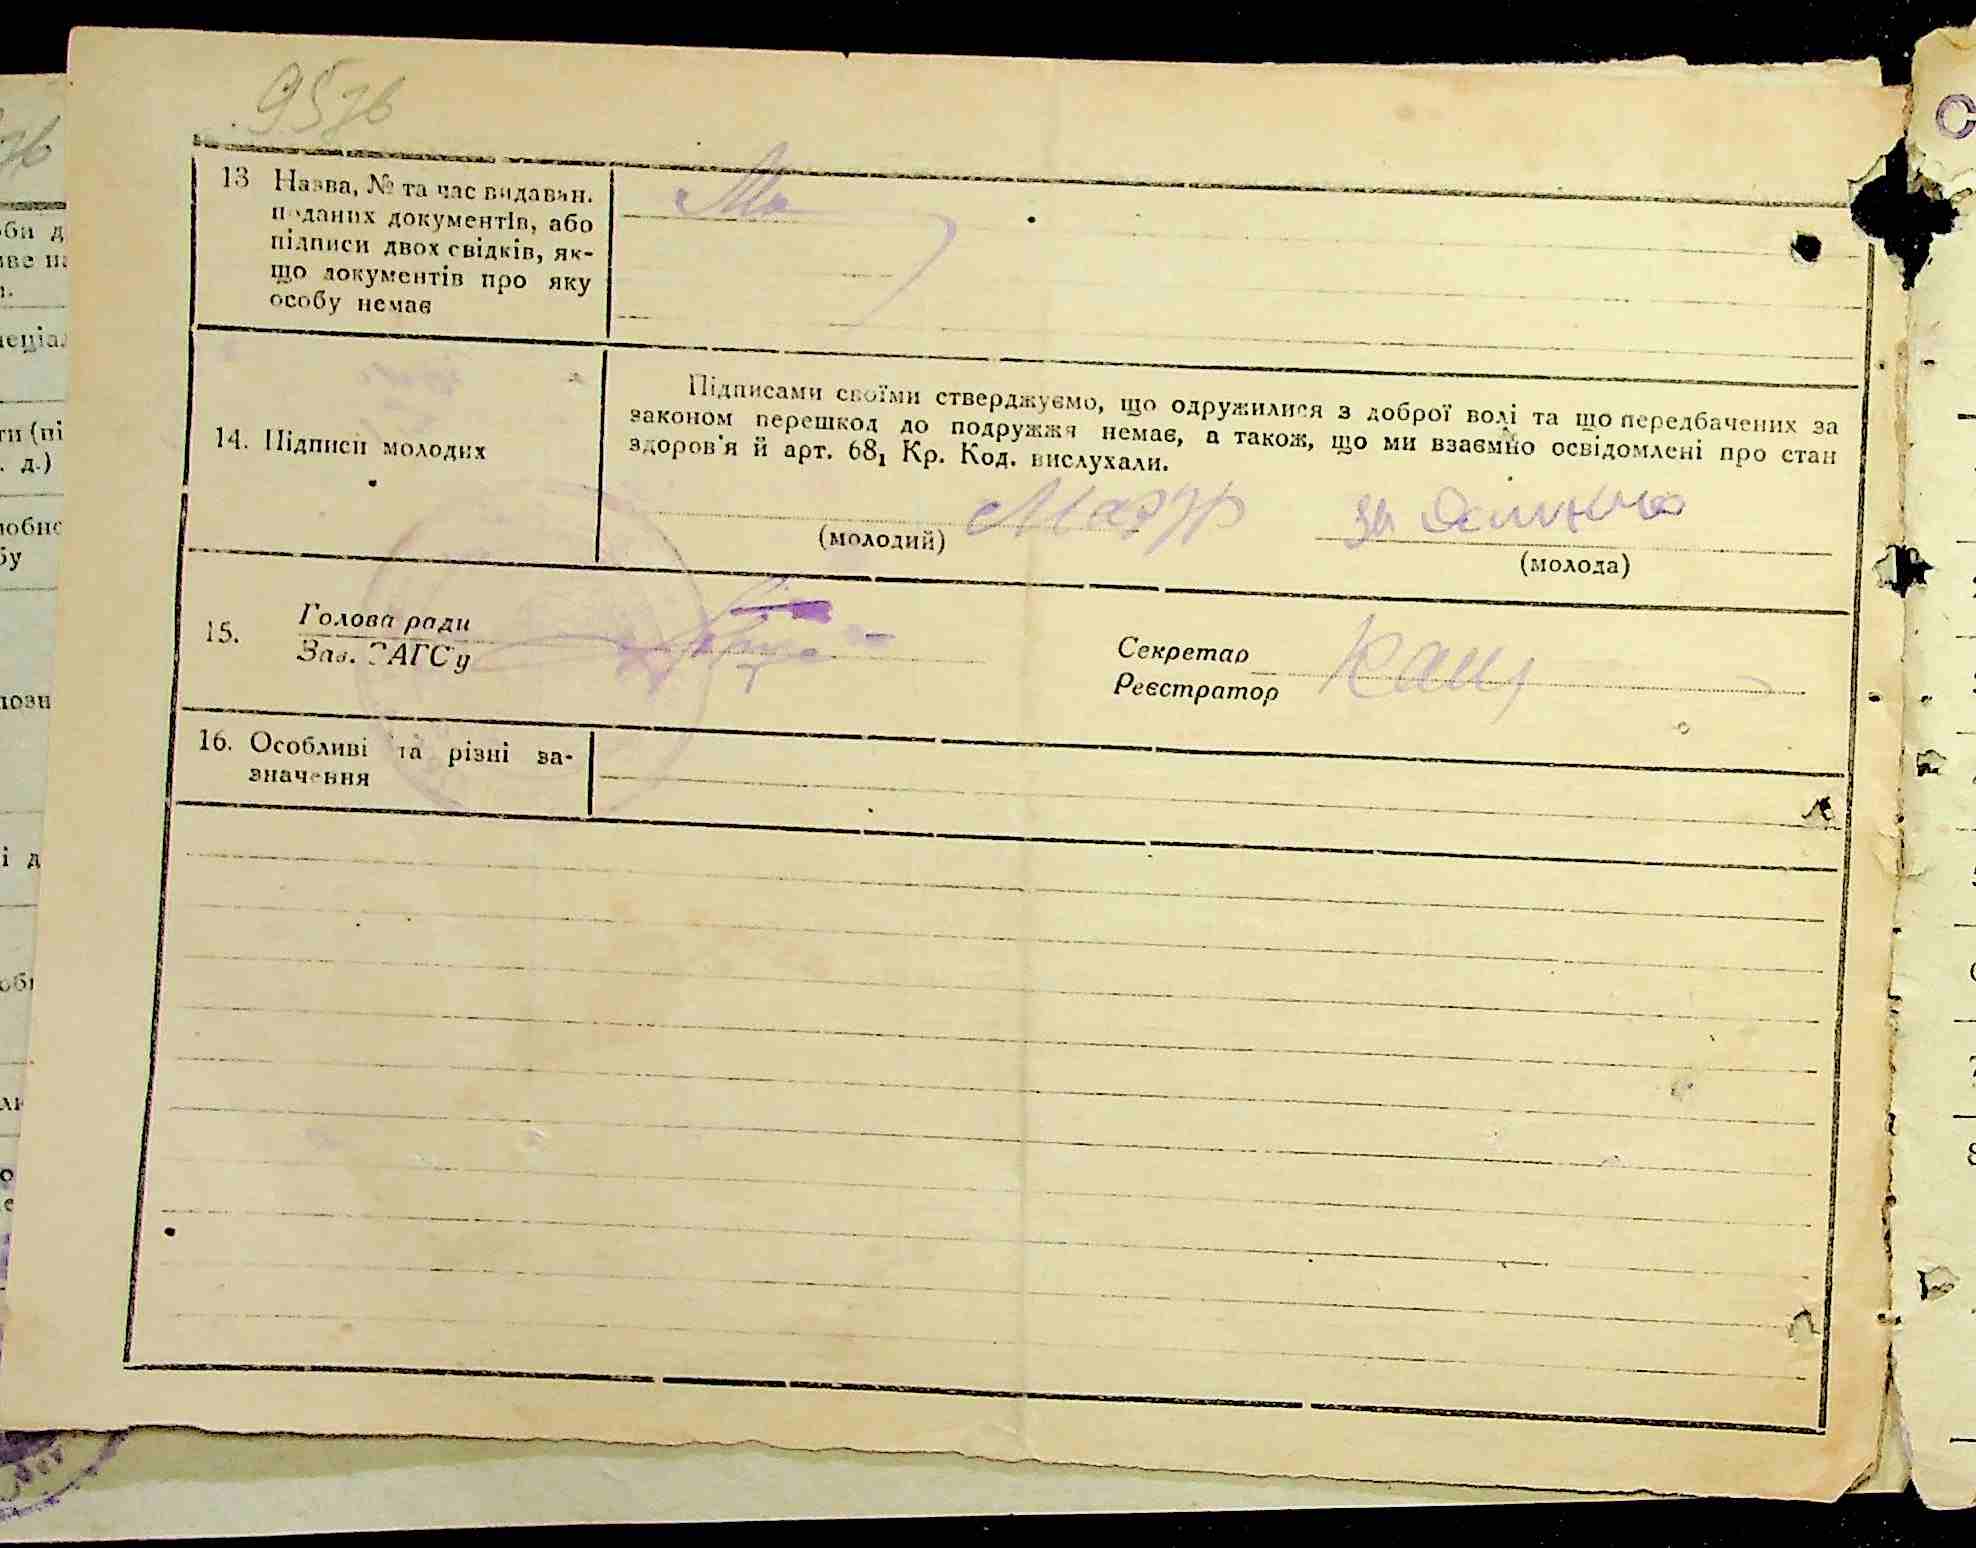 95зв
13 Назва, № та час видаван.
поданих документів, або
підписи двох свідків, як-
що документів про яку
особу немає
Підписами своїми стверджуємо, що одружилися з доброї волі та що передбачених за
законом перешкод до подружжя немає, а також, що ми взаємно освідомлені про стан
здоров'я й арт. 68₁ Кр. Код. вислухали.
14. Підписи молодих
Мазур
(молодий)
(молода)
15.
Голова ради
Зав. ЗАГСу
Секретар
Реєстратор
16. Особливі та різні за-
значення